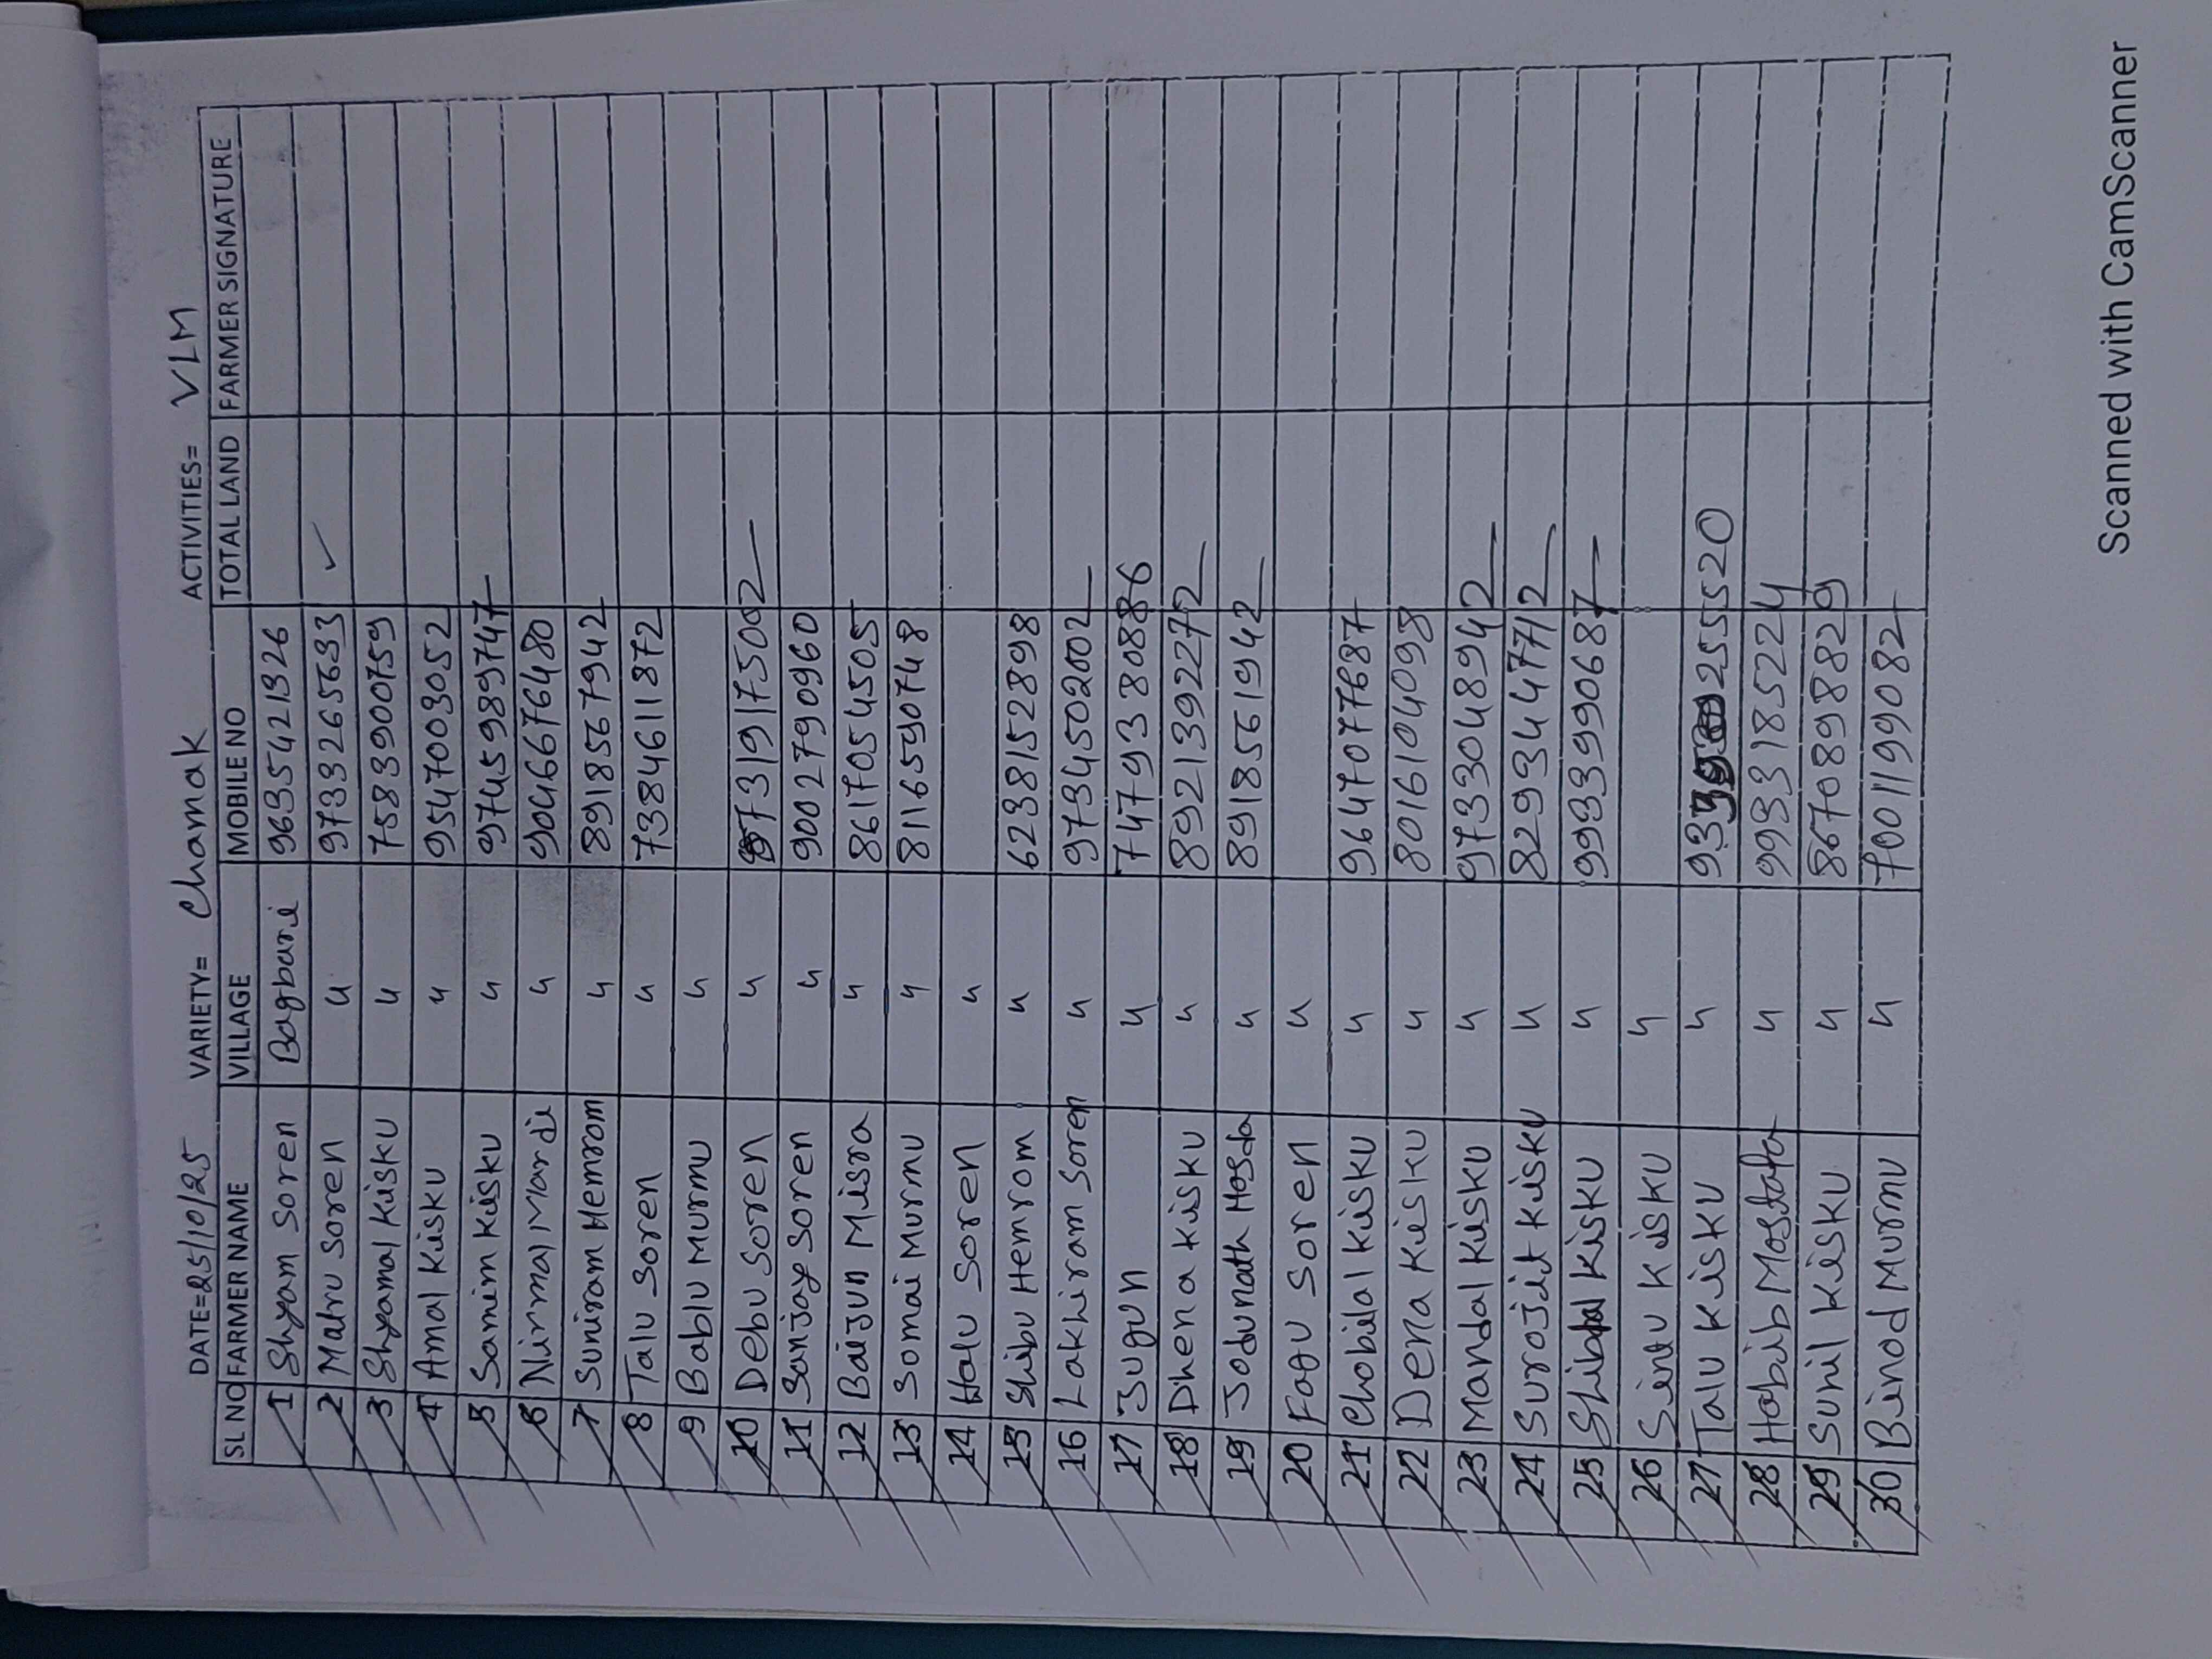 DATE=25/10/25 VARIETY= Chamak ACTIVITIES= VLM
SL NO FARMER NAME VILLAGE MOBILE NO TOTAL LAND FARMER SIGNATURE
1 Shyam Soren Bagbari 9635421326
2 Matru Soren 〃 9733265633 ✓
3 Shyamal Kisku 〃 7583900759
4 Amal Kisku 〃 9547003052
5 Samim Kisku 〃 9745989747
6 Nirmal Mardi 〃 9046676480
7 Suniram Hemrom 〃 8918567942
8 Talu Soren 〃 7384611872
9 Bablu Murmu 〃
10 Debu Soren 〃 7319175002
11 Sanjay Soren 〃 9002790960
12 Baijun Misra 〃 8617054505
13 Somai Murmu 〃 8116590748
14 Halu Soren 〃
15 Shibu Hemrom 〃 6238152898
16 Lakhiram Soren 〃 9734502002
17 Jugun 〃 7479380886
18 Dhena Kisku 〃 8921392272
19 Jodunath Hosda 〃 8918561942
20 Fagu Soren 〃
21 Chobilal Kisku 〃 9647077687
22 Dena Kisku 〃 8016104098
23 Mandal Kisku 〃 9733048942
24 Surojit Kisku 〃 8293447712
25 Shibdal Kisku 〃 9933990687
26 Sintu Kisku 〃
27 Talu Kisku 〃
28 Habib Mostafa 〃 9933185224
29 Sunil Kisku 〃 8670898829
30 Binod Murmu 〃 7001199082
Scanned with CamScanner